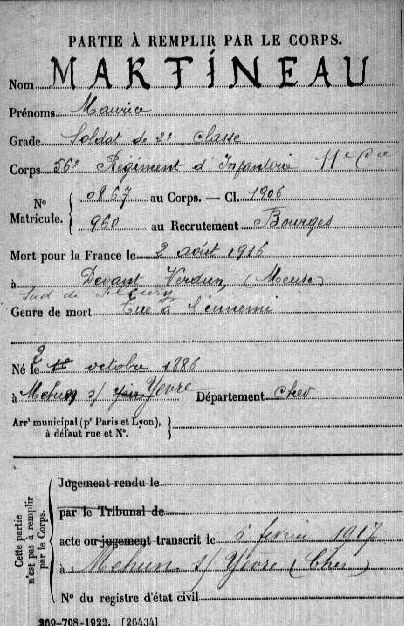 PARTIE À REMPLIR PAR LE CORPS.
Nom MARTINEAU
Prénoms Maurice
Grade Soldat de 2e classe
Corps 56e Régiment d'Infanterie 11e Cie
N° Matricule. 0867 au Corps. — Cl. 1906
960 au Recrutement Bourges
Mort pour la France le 2 août 1916
à Devant Verdun, (Meuse)
Sud de Fleury
Genre de mort Tué à l'ennemi
Né le octobre 1886
à Mehun s/ Yevre Département Cher
Arrt municipal (pr Paris et Lyon),
à défaut rue et N°.
Cette partie n'est pas à remplir par le Corps.
Jugement rendu le
par le Tribunal de
acte ou jugement transcrit le 6 février 1917
à Mehun s/ Yevre (Cher)
N° du registre d'état civil
369-708-1922. [26434]